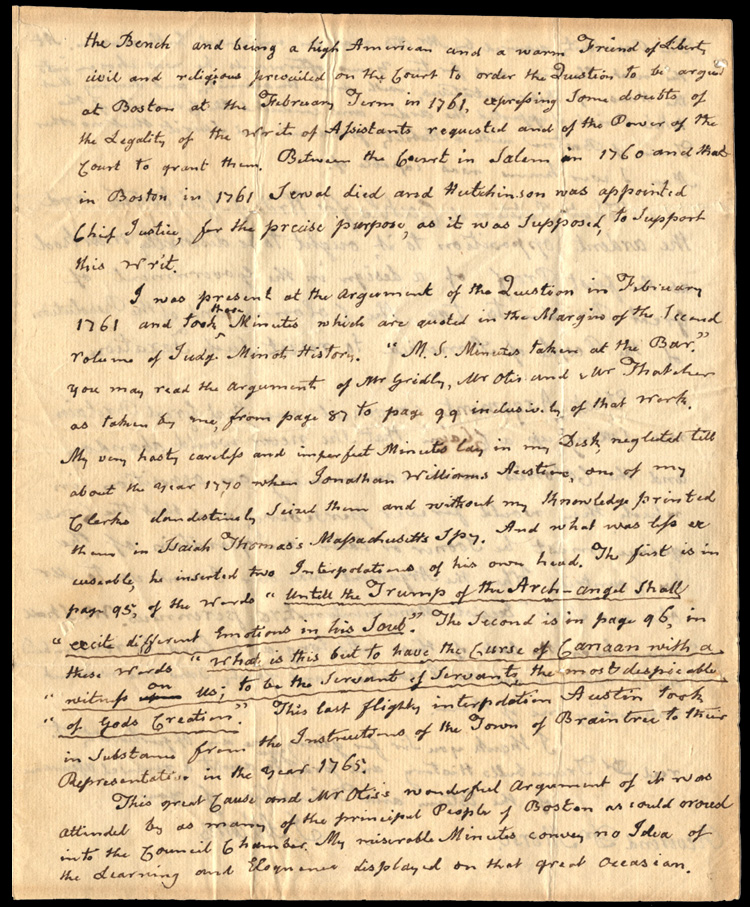 the Bench and being a high American and a warm Friend of Liberty
civil and religious prevailed on the Court to order the Question to be argued
at Boston at the February Term in 1761, expressing Some doubts of
the Legality of the Writ of Assistants requested and of the Power of the
Court to grant them. Between the Court in Salem in 1760 and that
in Boston in 1761 Sewal died and Hutchinson was appointed
Chif Justice, for the precise purpose, as it was Supposed, to Support
this Writ.
I was present at the Argument of the Question in February
1761 and took those Minutes which are quoted in the Margin of the Second
volume of Judge Minots History. "M.S. Minutes taken at the Bar."
You may read the Argument of Mr Gridly, Mr Otis and Mr Thatcher
as taken by me, from page 87 to page 99 inclusively, of that Work.
My very hasty careless and imperfect Minutes lay in my Desk, neglected till
about the Year 1770 when Jonathan Williams Austin, one of my
Clerks clandestinely Seized them and without my Knowledge printed
them in Isaiah Thomas's Massachusetts Spy. And what was less ex
cuseable, he inserted two Interpolations of his own head. The first is in
page 95, of the Words "Untill the Trump of the Arch-angel Shall
"excite different Emotions in his Soul". The Second is in page 96, in
these Words "What is this but to have the Curse of Canaan with a
"witness on Us; to be the Servant of Servants, the most despicable
"of Gods Creation." This last flighty interpolation Austin took
in Substance from the Instructions of the Town of Braintree to their
Representative in the Year 1765.
This great Cause and Mr Otis's wonderful Argument of it was
attended by as many of the principal People of Boston as could crowd
into the Council Chamber. My miserable Minutes convey no Idea of
the Learning and Eloquence displayed on that great occasion.